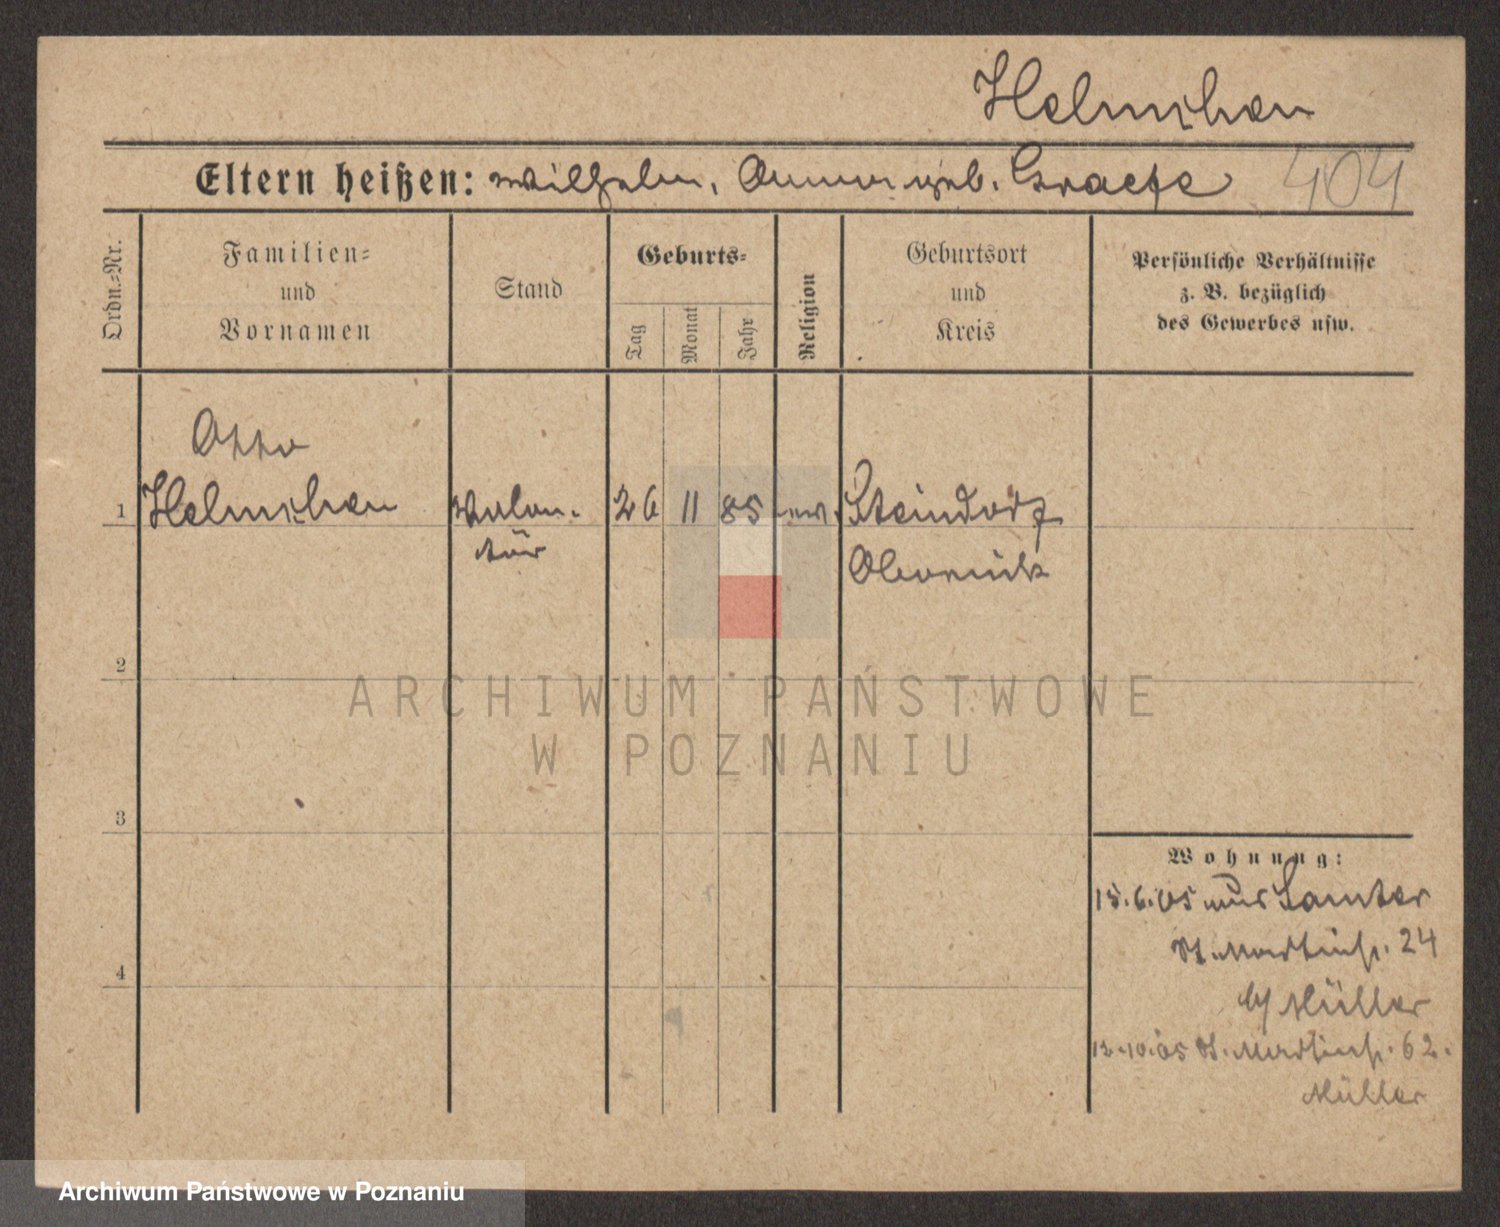 Helmchen
Eltern heißen: Wilhelm, Anna geb. Graefe 404
Ordn.=Nr.
Familien=
und
Vornamen
Stand
Geburts=
Tag
Monat
Jahr
Religion
Geburtsort
und
Kreis
Persönliche Verhältnisse
z. B. bezüglich
des Gewerbes usw.
Otto
1 Helmchen Volon- 26 11 85 ev. Steindorf
tär Obornik
2
3
4
Wohnung:
15.6.05 aus Samter
St. Martinstr. 24
b/ Müller
12.10.05 St. Martinstr. 62.
Müller
ARCHIWUM PAŃSTWOWE
W POZNANIU
Archiwum Państwowe w Poznaniu